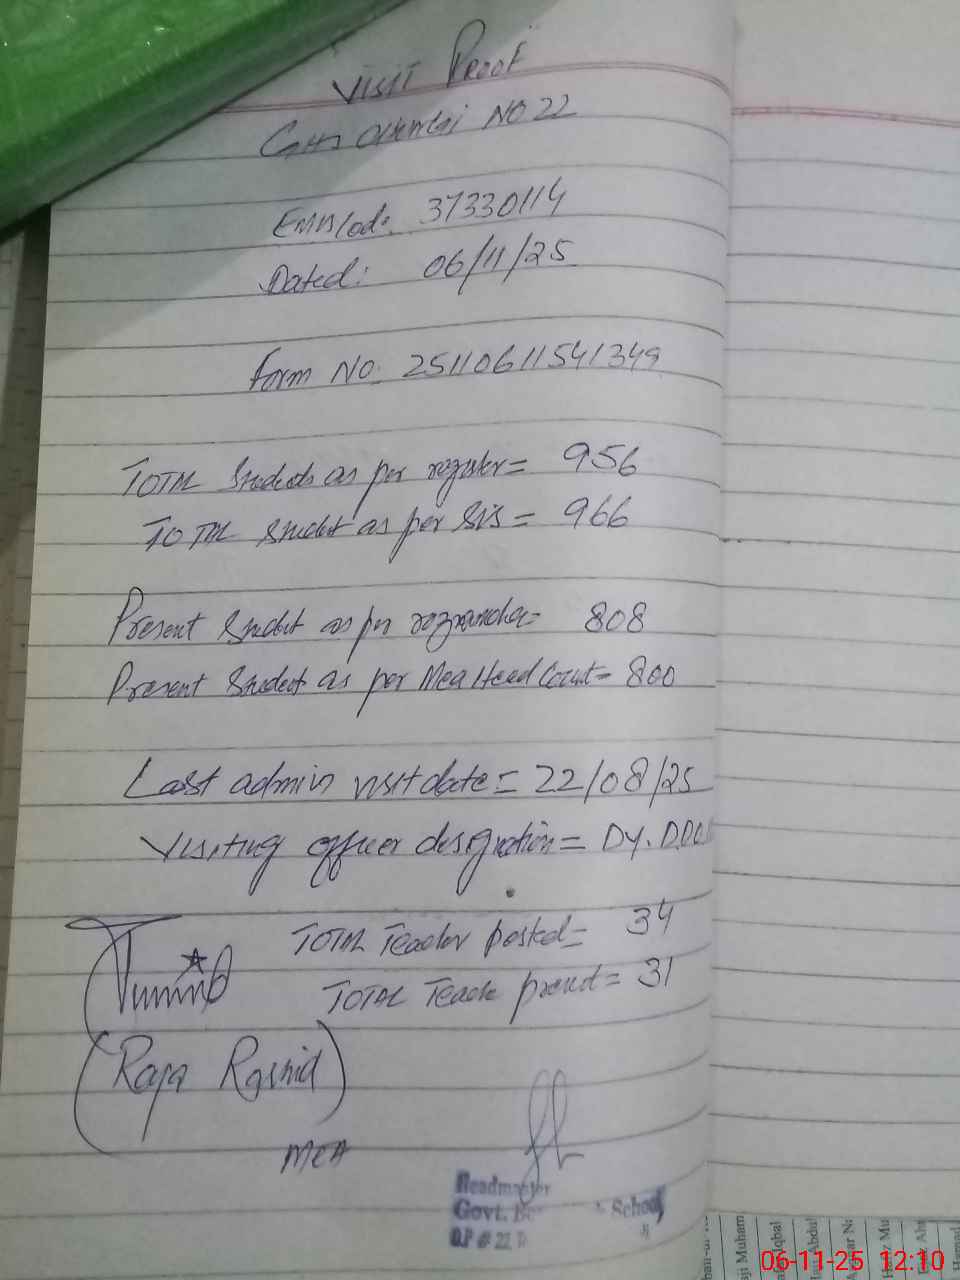 Visit Proof
NO 22
EMIS Code: 37330114
Dated: 06/11/25
Form No: 25110611541349
TOTAL Students as per register = 956
TOTAL Student as per SIS = 966
Present Student as per = 808
Present Student as per Mea Head Count = 800
Last admin visit date = 22/08/25
Visiting officer designation = DY. DDO
TOTAL Teacher posted = 34
TOTAL Teache present = 31
(Raja Rashid)
MEA
Headmaster
Govt. School
O.P # 22
06-11-25 12:10